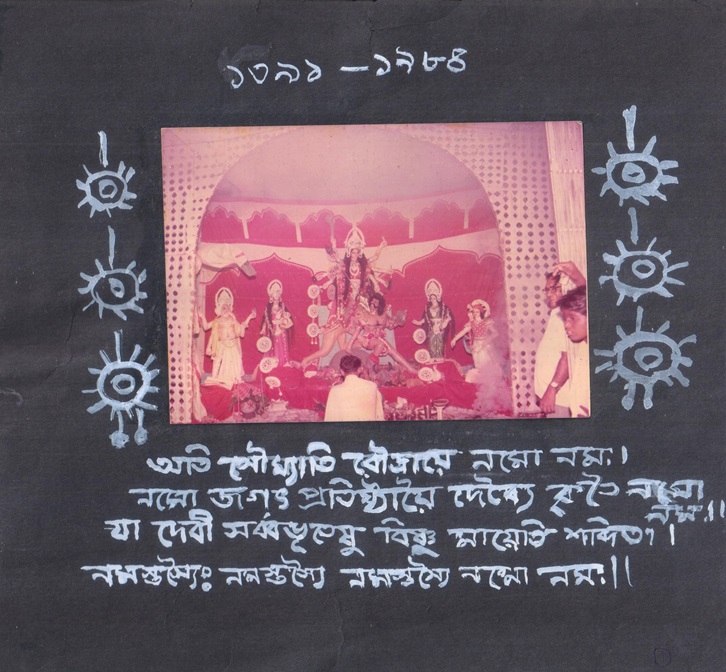 ১৩৯১ — ১৯৮৪
অতি সৌম্যাতি রৌদ্রায়ে নমো নমঃ।
নমো জগৎ প্রতিষ্ঠায়ৈ দেব্যৈ কৃত্যৈ নমো নমঃ।।
যা দেবী সর্ব্বভূতেষু বিষ্ণু মায়েতি শব্দিতা।
নমস্তস্যৈঃ নমস্তস্যৈ নমস্তস্যৈ নমো নমঃ।।